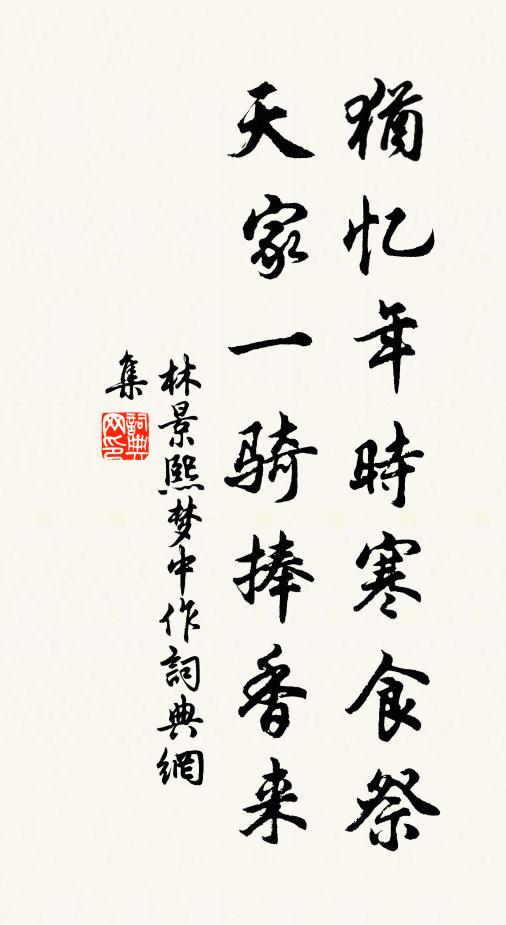 猶忆年時寒食祭
天家一骑捧香来
林景熙梦中作詞典網
集
詞典
网印